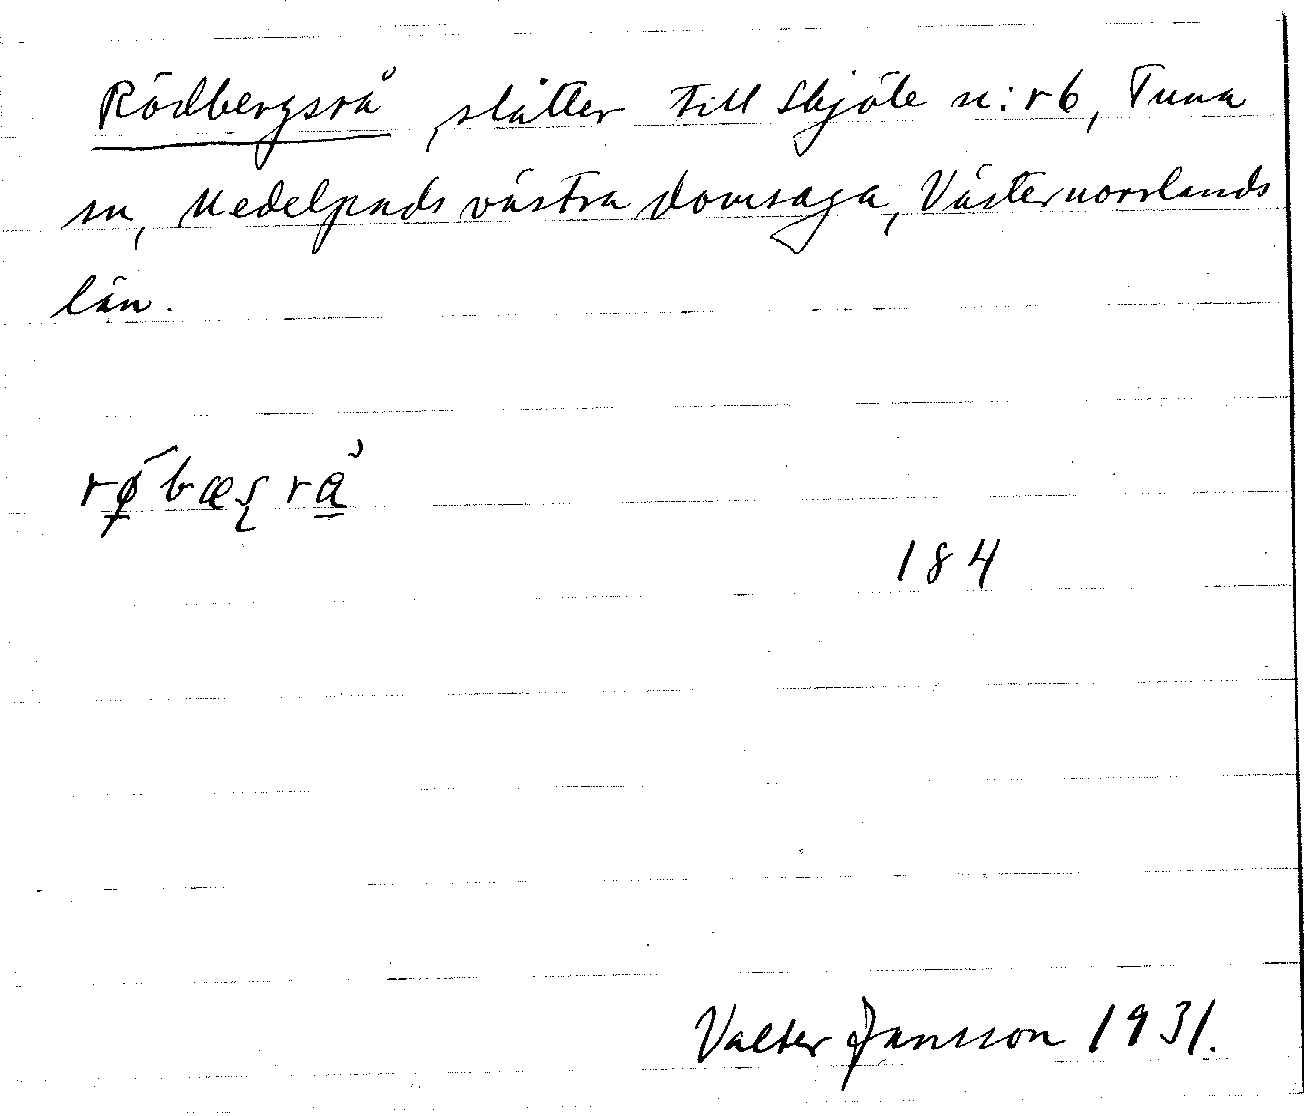 Rödbergsrå, slåtter till Skjöle n:r 6, Tuna
sn, Medelpads västra domsaga, Västernorrlands
län.
184
Valter Jansson 1931.